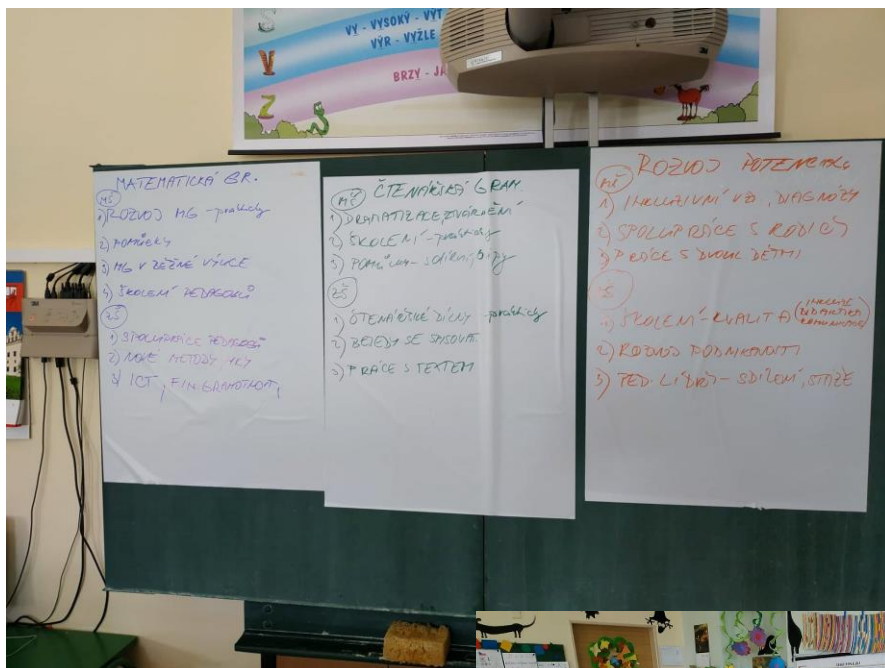 VY - VYSOKÝ - VÝT
VÝR - VYŽLE
BRZY - JA
S
V
Z
3M
MATEMATICKÁ GR.
MŠ
1) ROZVOJ MG - prakticky
2) POMŮCKY
3) MG V BĚŽNÉ VÝUCE
4) ŠKOLENÍ PEDAGOGŮ
ZŠ
1) SPOLUPRÁCE PEDAGOGŮ
2) NOVÉ METODY, HRY
3) ICT, FIN. GRAMOTNOST,
ČTENÁŘSKÁ GRAM.
MŠ
1) DRAMATIZACE, ZTVÁRNĚNÍ
2) ŠKOLENÍ - prakticky
3) POMŮCKY - sdílení,
ZŠ
1) ČTENÁŘSKÉ DÍLNY - prakticky
2) BESEDY SE SPISOVAT.
3) PRÁCE S TEXTEM
ROZVOJ POTENCIÁLU
MŠ
1) INKLUZIVNÍ VZD, DIAGNÓZY
2) SPOLUPRÁCE S RODIČI
3) PRÁCE S DVOUL. DĚTMI
ZŠ
1) ŠKOLENÍ - KVALITA (INKLUZE DIDAKTIKA KOMUNIKACE)
2) ROZVOJ PODNIKAVOSTI
3) PED. LÍDŘI - SDÍLENÍ, STÁŽE